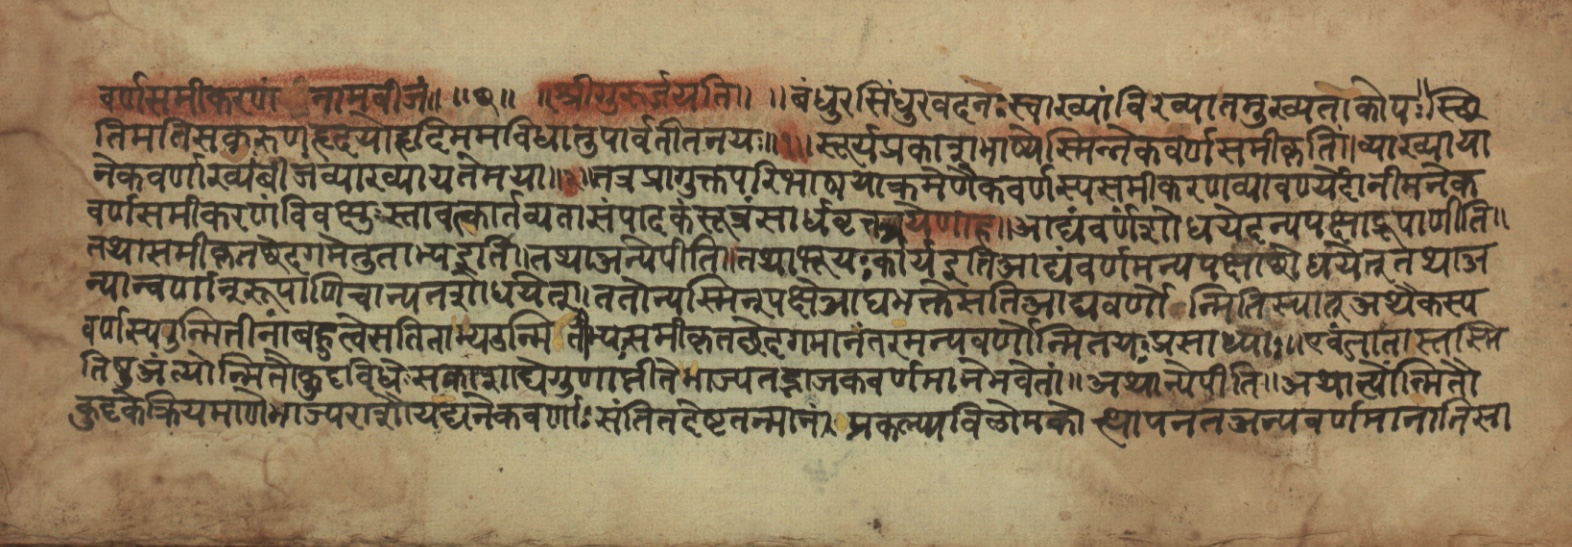 वर्णसमीकरणं नामबीजं॥ ॥७॥ ॥श्रीगुरुर्जयति॥ ॥बंधुरसिंधुरवदनःस्वाख्यांविख्यातमुख्यताकोपः॥स्थि
तिमतिसकरुणहृदयोहृदिममविधातुपार्वतीतनयः॥ ॥सूर्यप्रकाशभाष्येस्मिन्नेकवर्णसमीकृतिं॥व्याख्याया
नेकवर्णाख्यंबीजंव्याख्यायतेमया॥ ॥तत्रप्रागुक्तपरिभाषयाक्रमेणैकवर्णस्यसमीकरणव्यावर्ण्येदानीमनेक
वर्णसमीकरणंविवक्षुःस्तावत्कार्तव्यतासंपादकंसूत्रंसार्धवृत्तत्रयेणाह॥आद्यंवर्णंशोधयेदन्यपक्षाद्रूपाणीति॥
तथासमीकृतछेदगमेतुताभ्यइति॥तथाअन्येपीति॥तथाभूयःकार्यइतिआद्यंवर्णमन्यपक्षाछोधयेत्तथाअ
न्यान्वर्णान्रूपाणिचान्यतशोधयेत्॥ततोन्यस्मिन्पक्षेआद्यभक्तेसतिआद्यवर्णोन्मितिस्यात्अथैकस्य
वर्णस्यउन्मितीनांबहुत्वेसतिताभ्यउन्मितिभ्यःसमीकृतछेदगमानंतरमन्यवर्णोन्मितयःप्रसाध्याः॥एवंजातास्तस्मि
तिषुअंत्योन्मितौकुट्टविधेःसकाशाद्येगुणाप्तीतेभाज्यतद्भाजकवर्णमानेभवेतां॥अथान्येपीति॥अथांत्योन्मितौ
कुट्टकेक्रियमाणेभाज्यराशौयद्यनेकवर्णाःसंतितदेष्टतन्मानं प्रकल्प्यविलोमको त्थापनतअन्यवर्णमानानिसा